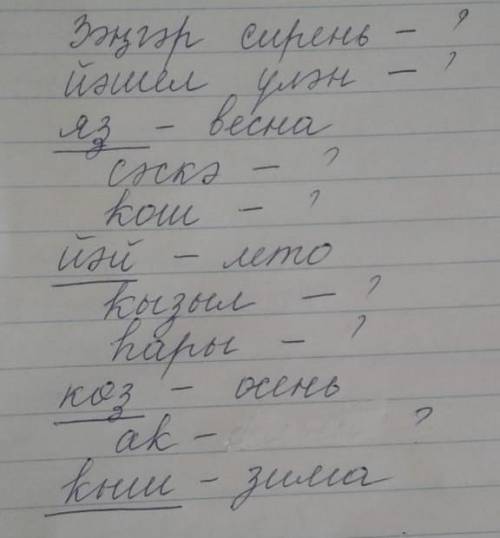 Зәңгәр сирень - ?
йәшел үлән - ?
яҙ - весна
сәскә - ?
кош - ?
йәй - лето
кызыл - ?
һары - ?
көҙ - осень
ак - ?
кыш - зима